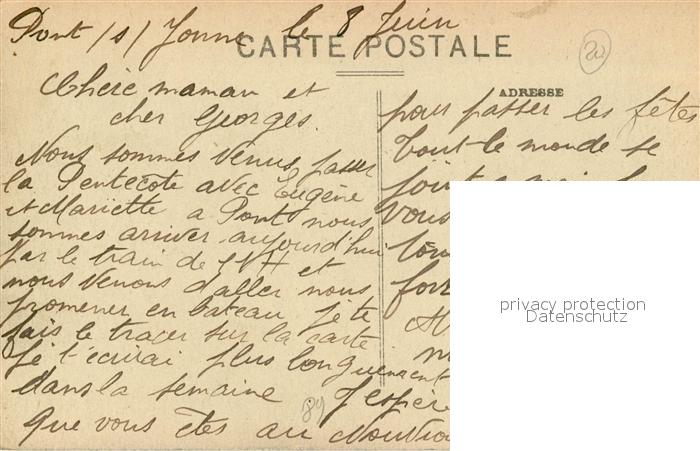 Pont /s/ Yonne le 8 Juin
CARTE POSTALE
20
Chère maman et
cher Georges.
Nous sommes venus passer
la Pentecôte avec Eugène
et Mariette a Pont nous
sommes arriver aujourd'hui
par le train de et
nous venons d'aller nous
promener en bateau je te
fais le tracer sur la carte
je t'écrirai plus longuement
dans la semaine J'espère
que vous êtes au
89
ADRESSE
pour passer les fêtes
Tout le monde se
joint a moi
vous
fort
privacy protection
Datenschutz